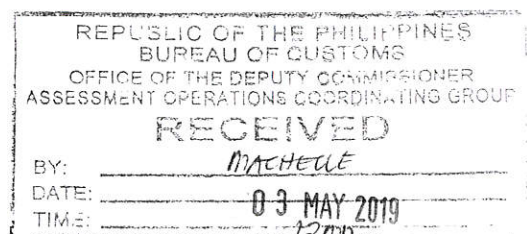 REPUBLIC OF THE PHILIPPINES
BUREAU OF CUSTOMS
OFFICE OF THE DEPUTY COMMISSIONER
ASSESSMENT OPERATIONS COORDINATING GROUP
RECEIVED
BY: MACHELLE
DATE: 03 MAY 2019
TIME: